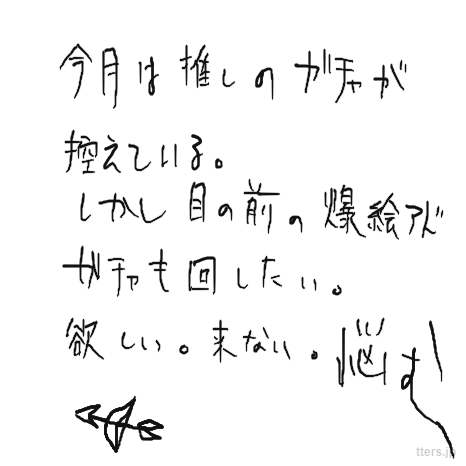 今月は推しのガチャが
控えている。
しかし目の前の爆絵アド
ガチャも回したい。
欲しい。来ない。悩む
tters.jp